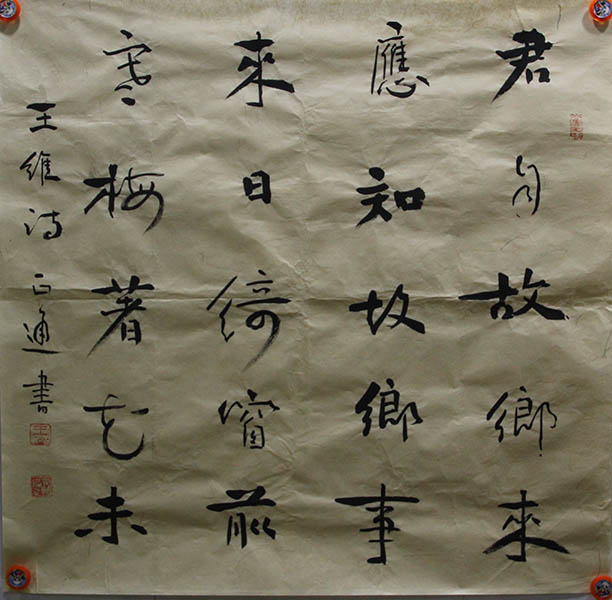 君自故鄉來
應知故鄉事
來日綺窗前
寒梅著花未
王維詩 正通書